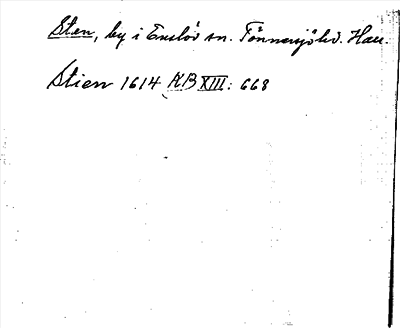 Sten, by i Enslöv sn. Tönnersjö hd. Hall.
Stien 1614 KB XIII: 668